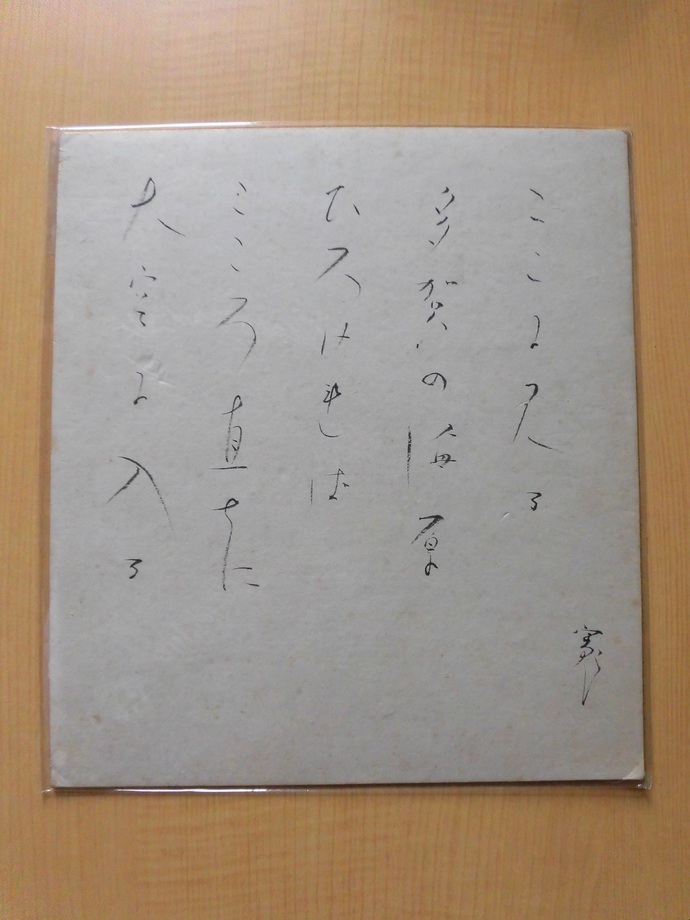 ここに見る
多賀の海原
ひろければ
こころ直ちに
大空に入る
寛